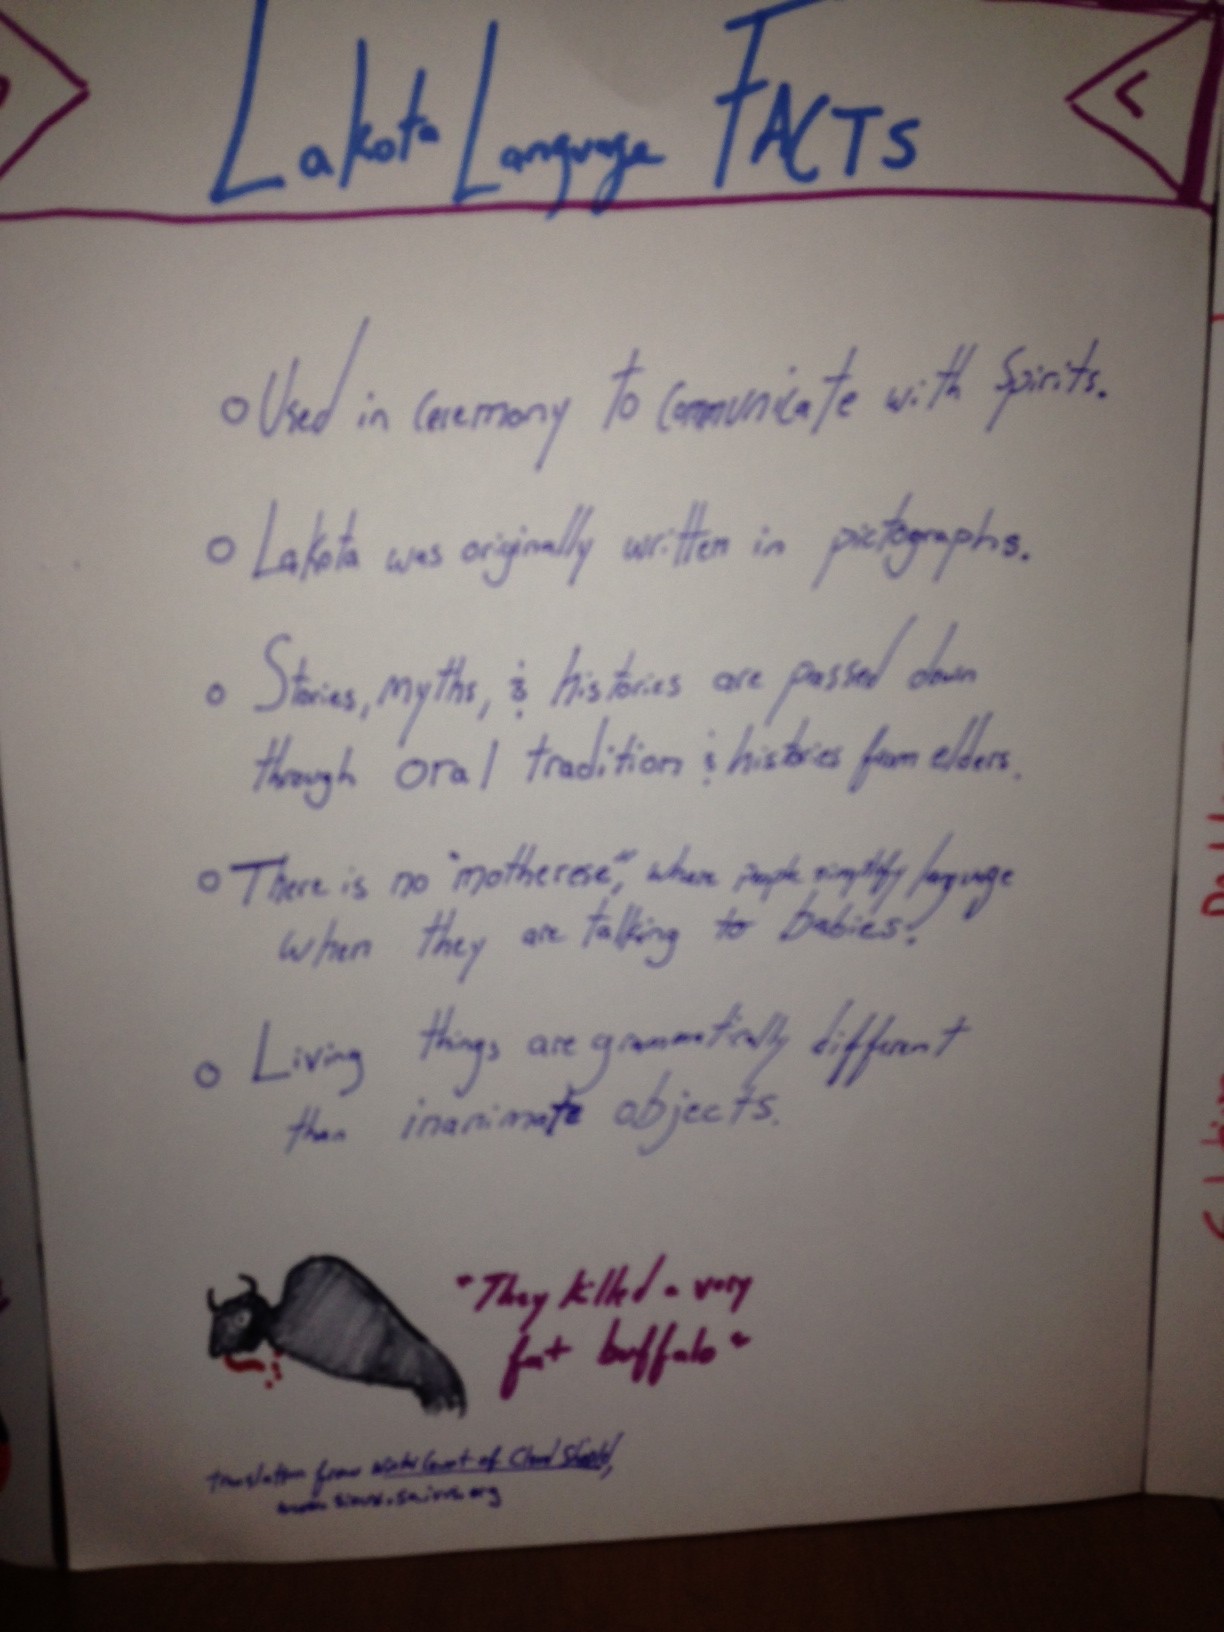 Lakota Language FACTS
o Used in ceremony to communicate with Spirits.
o Lakota was originally written in pictographs.
o Stories, myths, & histories are passed down
through oral tradition & histories from elders.
o There is no "motherese", where people simplify language
when they are talking to babies.
o Living things are grammatically different
than inanimate objects.
"They killed a very
fat buffalo"
translation from Winter Count of Cloud Shield,